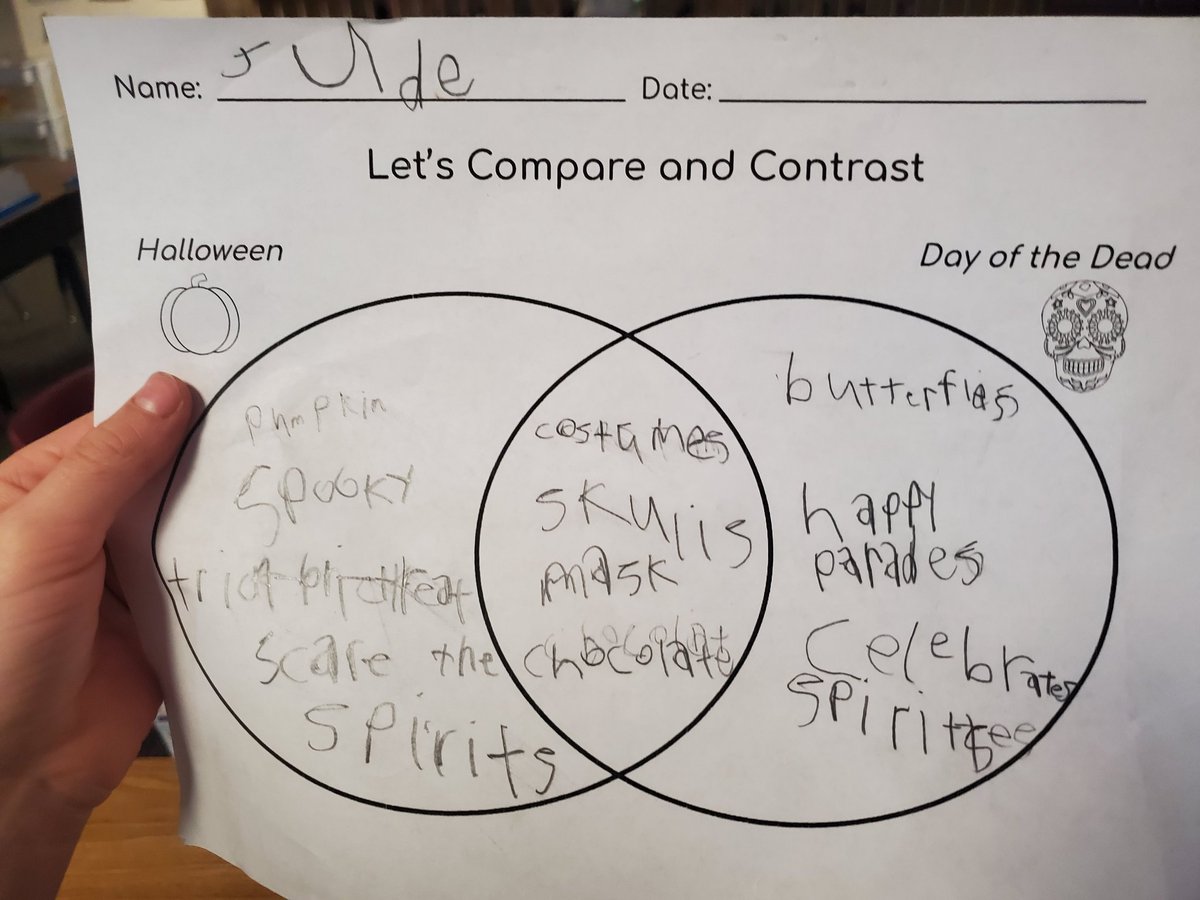 Name: Jude Date:
Let's Compare and Contrast
Halloween
Day of the Dead
pumpkin
spooky
scare the
spirits
costumes
skulls
mask
chocolate
butterfies
happy
parades
Celebrates